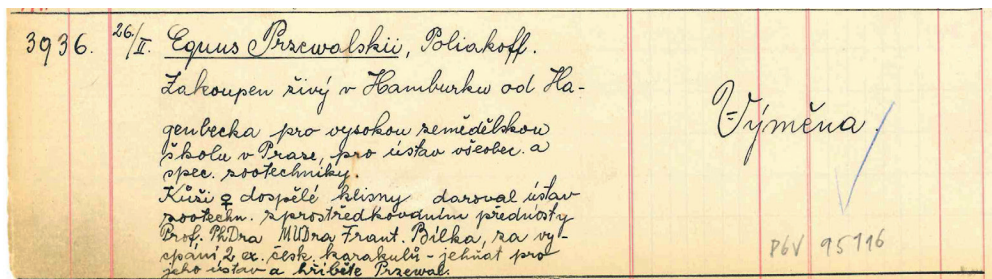 3936. 26/II. Equus Przewalskii, Poliakoff.
Zakoupen živý v Hamburku od Ha-
genbecka pro vysokou zemědělskou
školu v Praze, pro ústav všeobec. a
spec. zootechniky.
Kůži ♀ dospělé klisny daroval ústav
zootechn. zprostředkováním přednosty
Prof. PhDra MUDra Frant. Bílka, za vy-
cpání 2 ex. česk. karakulů - jehňat pro
jeho ústav a hříběte Przewal.
Výměna.
P6V 95116